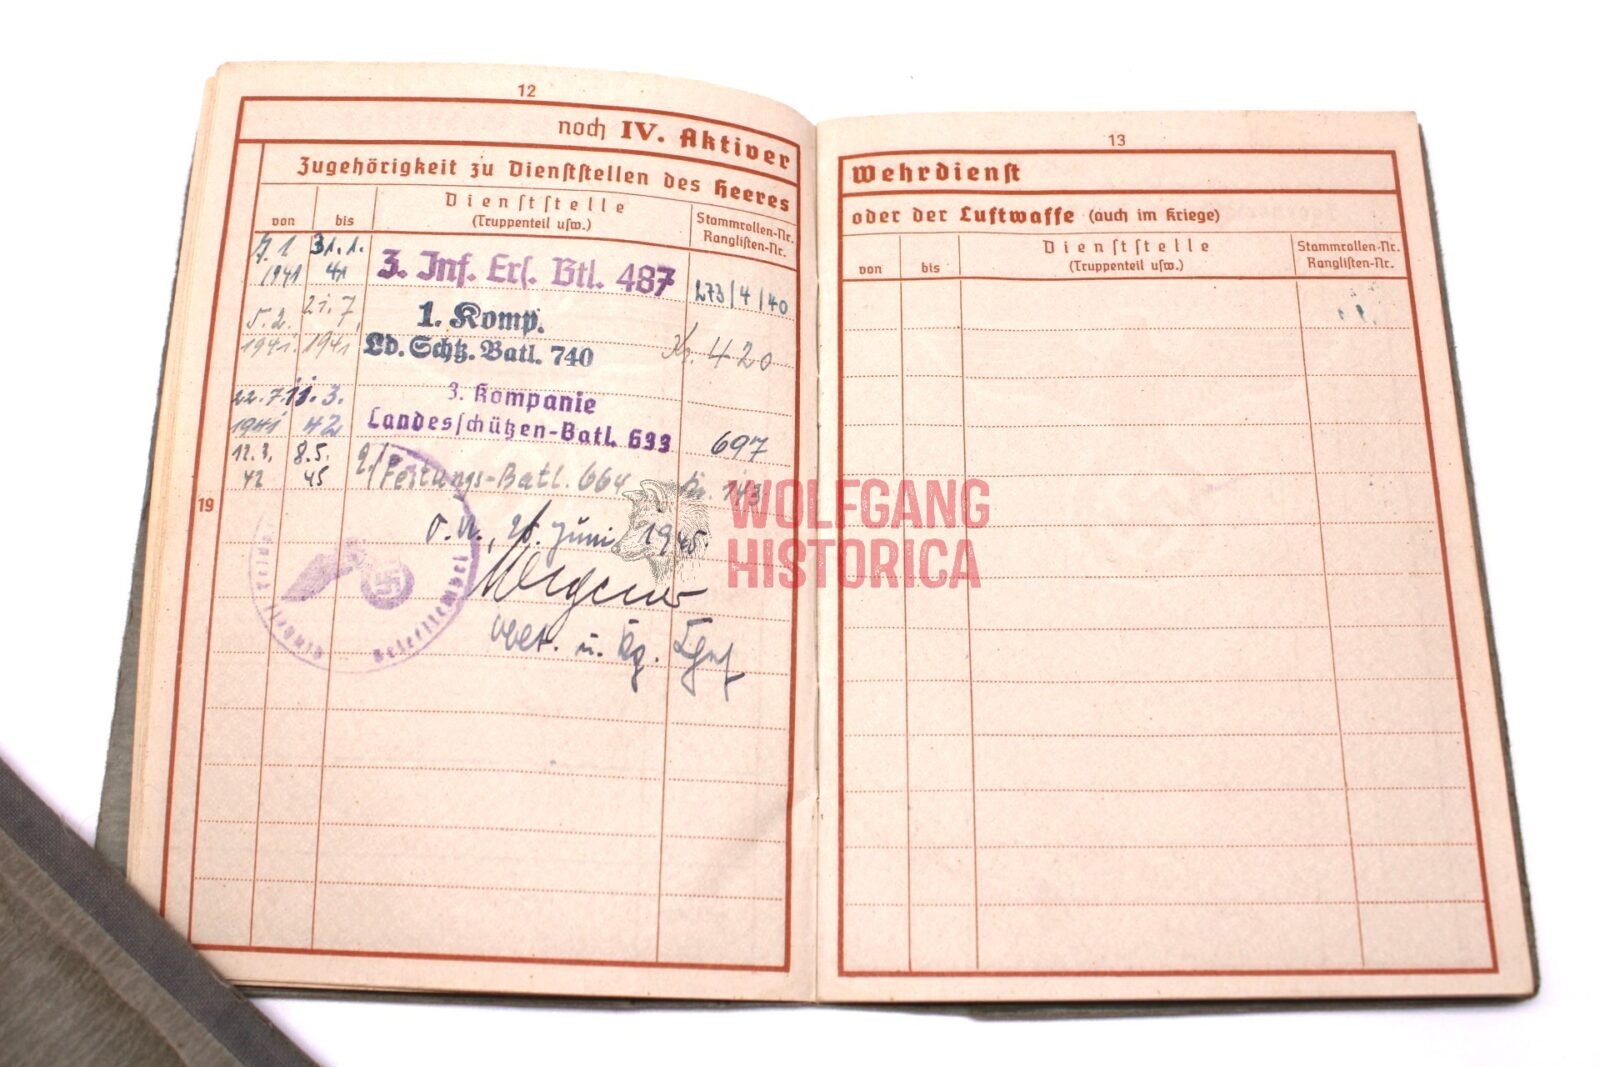 12
noch IV. Aktiver
Zugehörigkeit zu Dienststellen des Heeres
von
bis
Dienststelle
(Truppenteil usw.)
Stammrollen-Nr.
Ranglisten-Nr.
1941
31.1.
41
3. Inf. Ers. Btl. 487
273/4/40
5.2.
1941.
21.7.
1941
1. Komp.
Ld. Schtz. Batl. 740
Kr. 420
22.7.
1941
11.3.
42
3. Kompanie
Landesschützen-Batl. 633
697
12.3.
42
8.5.
45
2./Festungs-Batl. 664
Kr. 143
19
O.U., Juni 1945.
u.
13
Wehrdienst
oder der Luftwaffe (auch im Kriege)
von
bis
Dienststelle
(Truppenteil usw.)
Stammrollen-Nr.
Ranglisten-Nr.
WOLFGANG
HISTORICA